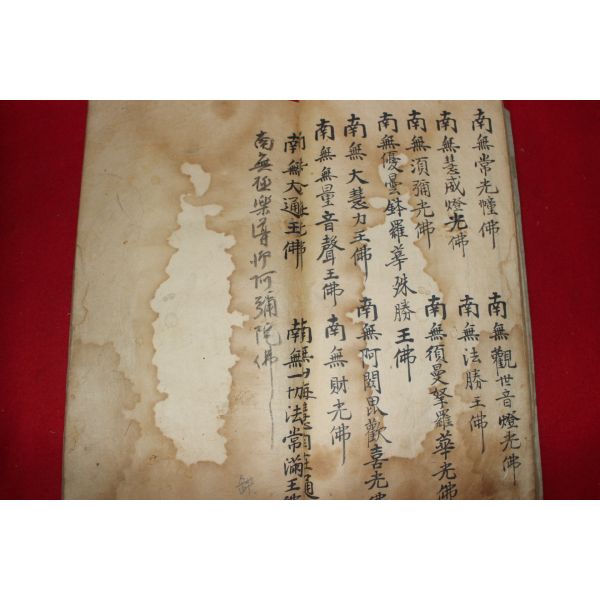 南無常光幢佛
南無觀世音燈光佛
南無慧威燈光佛
南無法勝王佛
南無須彌光佛
南無須曼拏羅華光佛
南無優曇鉢羅華殊勝王佛
南無大慧力王佛
南無阿閦毘歡喜光
南無無量音聲王佛
南無財光佛
南無大通王佛
南無海慧自在通
南無一切法常滿王佛
南無極樂導師阿彌陀佛